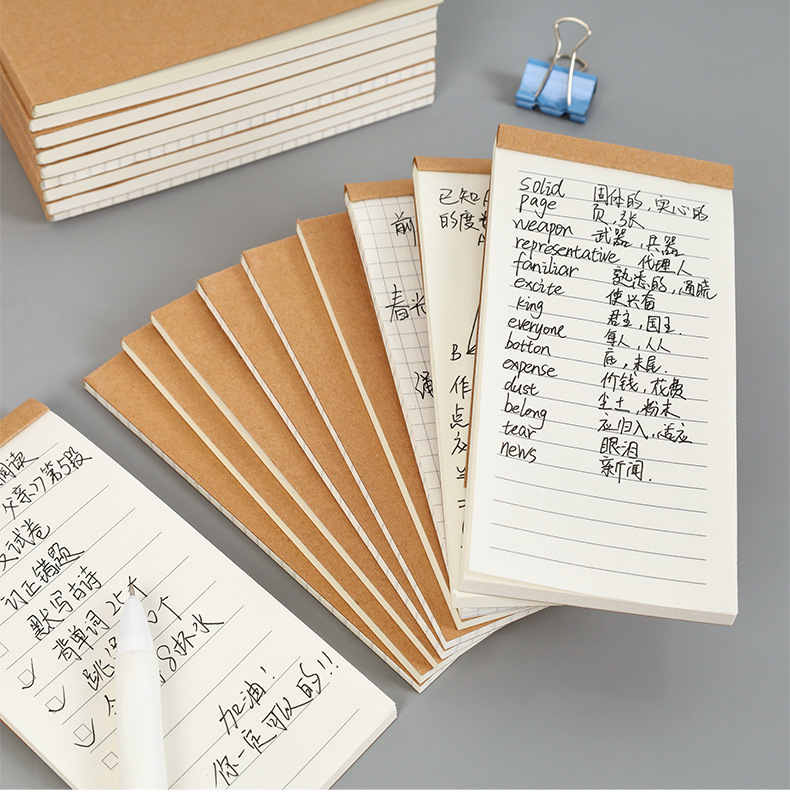 solid 固体的,实心的
page 页,张
weapon 武器,兵器
representative 代理人
familiar 熟悉的,通晓
excite 使兴奋
king 君主,国王.
everyone 每人,人人
botton 底,末尾.
expense 价钱,花费
dust 尘土,粉末
belong 应归入,适应
tear 眼泪
news 新闻.
已知
的度
B
作
点
前
春
父亲》第5段
试卷
订正错题
默写古诗
背单词 25个
跳
8杯水
加油!
你一定可以的!!